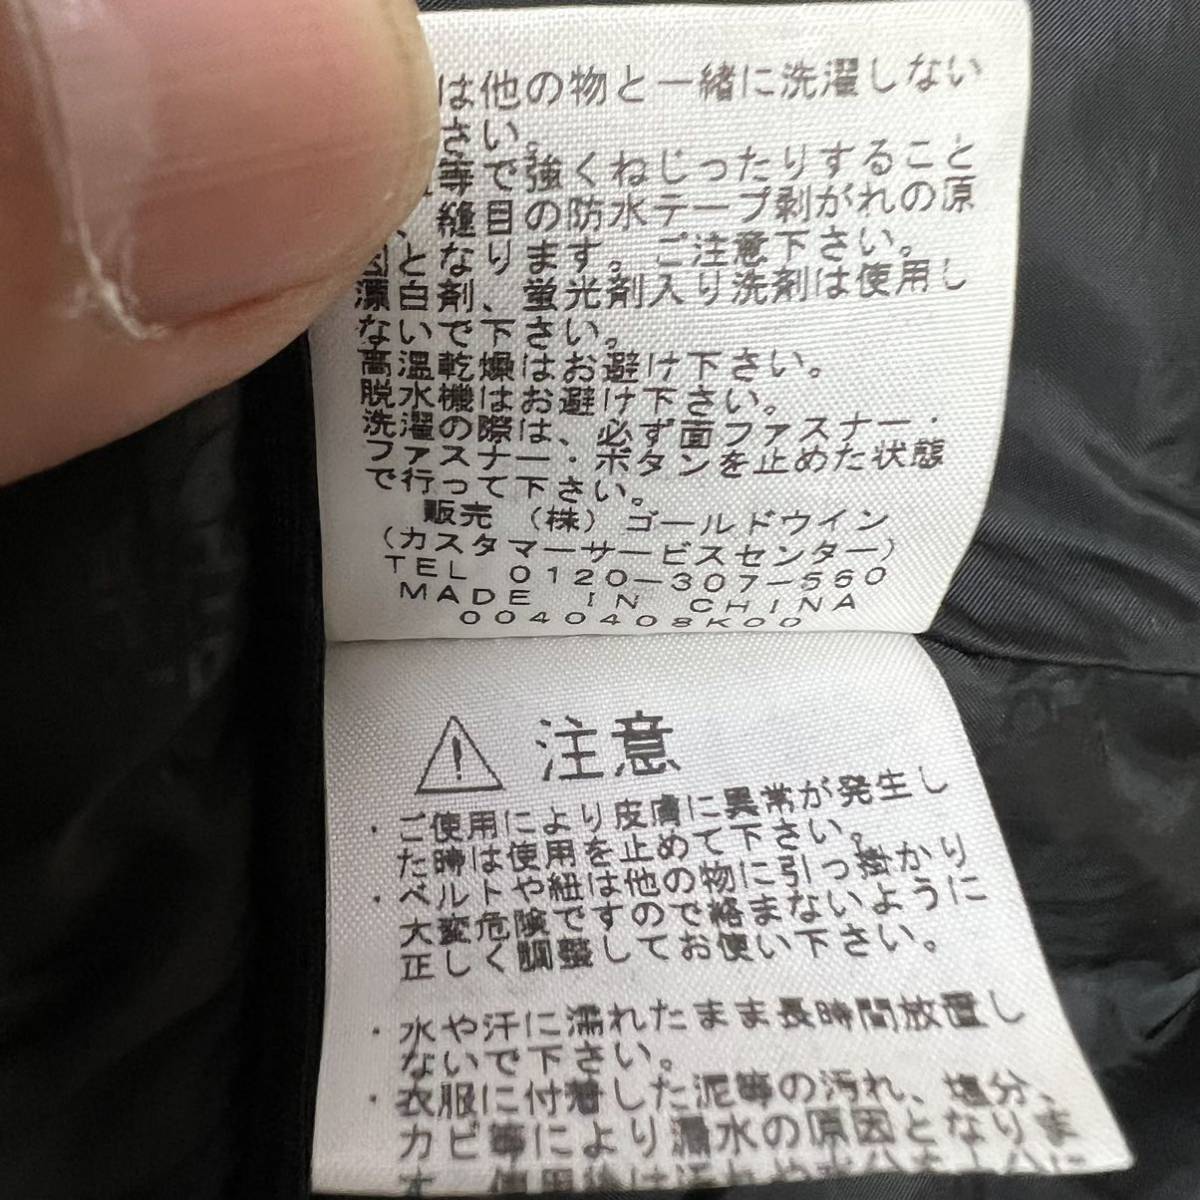 は他の物と一緒に洗濯しない
さい。
等で強くねじったりすること
、縫目の防水テープ剥がれの原
因となります。ご注意下さい。
漂白剤、蛍光剤入り洗剤は使用し
ないで下さい。
高温乾燥はお避け下さい。
脱水機はお避け下さい。
洗濯の際は、必ず面ファスナー・
ファスナー・ボタンを止めた状態
で行って下さい。
販売 (株) ゴールドウイン
(カスタマーサービスセンター)
TEL 0120-307-560
MADE IN CHINA
0040408K00
注意
・ご使用により皮膚に異常が発生し
た時は使用を止めて下さい。
・ベルトや紐は他の物に引っ掛かり
大変危険ですので絡まないように
正しく調整してお使い下さい。
・水や汗に濡れたまま長時間放置し
ないで下さい。
・衣服に付着した泥等の汚れ、塩分、
カビ等により漏水の原因となりま
す。使用後は汚れや水分を十分に